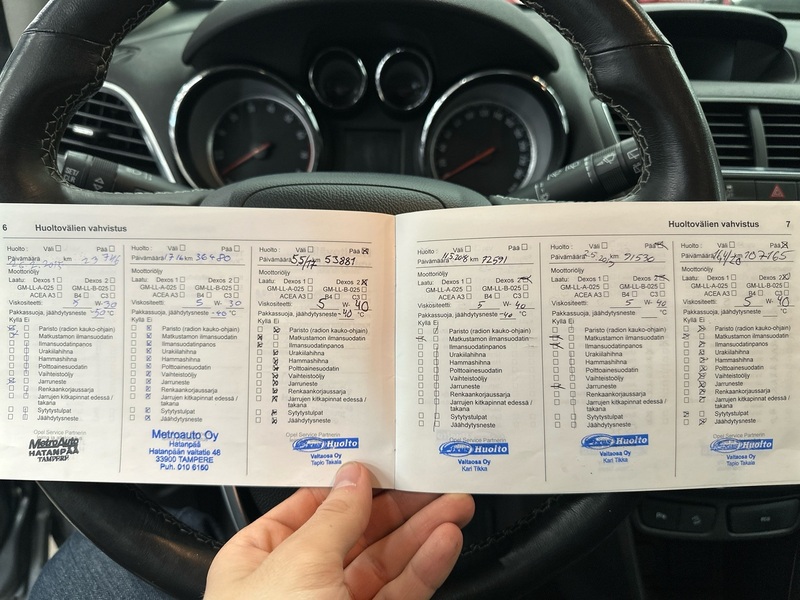 6 Huoltovälien vahvistus
Huolto : Väli Pää
Päivämäärä km
Moottoriöljy
Laatu: Dexos 1 Dexos 2
GM-LL-A-025 GM-LL-B-025
ACEA A3 B4 C3
Viskositeetti 5 W- 30
Pakkassuoja, jäähdytysneste -50 °C
Kyllä Ei
Paristo (radion kauko-ohjain)
Matkustamon ilmansuodatin
Ilmansuodatinpanos
Urakiilahihna
Hammashihna
Polttoainesuodatin
Vaihteistoöljy
Jarruneste
Renkaankorjaussarja
Jarrujen kitkapinnat edessä /
takana
Sytytystulpat
Jäähdytysneste
MetroAuto
HATANPÄÄ
TAMPERE
Huolto : Väli Pää
Päivämäärä km 36480
Moottoriöljy
Laatu: Dexos 1 Dexos 2
GM-LL-A-025 GM-LL-B-025
ACEA A3 B4 C3
Viskositeetti 5 W- 30
Pakkassuoja, jäähdytysneste -40 °C
Kyllä Ei
Paristo (radion kauko-ohjain)
Matkustamon ilmansuodatin
Ilmansuodatinpanos
Urakiilahihna
Hammashihna
Polttoainesuodatin
Vaihteistoöljy
Jarruneste
Renkaankorjaussarja
Jarrujen kitkapinnat edessä /
takana
Sytytystulpat
Jäähdytysneste
Metroauto Oy
Hatanpää
Hatanpään valtatie 46
33900 TAMPERE
Puh. 010 6160
Huolto : Väli Pää
Päivämäärä km 53881
Moottoriöljy
Laatu: Dexos 1 Dexos 2
GM-LL-A-025 GM-LL-B-025
ACEA A3 B4 C3
Viskositeetti 5 W- 40
Pakkassuoja, jäähdytysneste -40 °C
Kyllä Ei
Paristo (radion kauko-ohjain)
Matkustamon ilmansuodatin
Ilmansuodatinpanos
Urakiilahihna
Hammashihna
Polttoainesuodatin
Vaihteistoöljy
Jarruneste
Renkaankorjaussarja
Jarrujen kitkapinnat edessä /
takana
Sytytystulpat
Jäähdytysneste
Opel Service Partnerin
Huolto
Valtaosa Oy
Tapio Takala
Huoltovälien vahvistus 7
Huolto : Väli Pää
Päivämäärä km 72591
Moottoriöljy
Laatu: Dexos 1 Dexos 2
GM-LL-A-025 GM-LL-B-025
ACEA A3 B4 C3
Viskositeetti 5 W- 40
Pakkassuoja, jäähdytysneste -40 °C
Kyllä Ei
Paristo (radion kauko-ohjain)
Matkustamon ilmansuodatin
Ilmansuodatinpanos
Urakiilahihna
Hammashihna
Polttoainesuodatin
Vaihteistoöljy
Jarruneste
Renkaankorjaussarja
Jarrujen kitkapinnat edessä /
takana
Sytytystulpat
Jäähdytysneste
Opel Service Partnerin
Huolto
Valtaosa Oy
Kari Tikka
Huolto : Väli Pää
Päivämäärä km 91530
Moottoriöljy
Laatu: Dexos 1 Dexos 2
GM-LL-A-025 GM-LL-B-025
ACEA A3 B4 C3
Viskositeetti 5 W- 40
Pakkassuoja, jäähdytysneste °C
Kyllä Ei
Paristo (radion kauko-ohjain)
Matkustamon ilmansuodatin
Ilmansuodatinpanos
Urakiilahihna
Hammashihna
Polttoainesuodatin
Vaihteistoöljy
Jarruneste
Renkaankorjaussarja
Jarrujen kitkapinnat edessä /
takana
Sytytystulpat
Jäähdytysneste
Opel Service Partnerin
Huolto
Valtaosa Oy
Kari Tikka
Huolto : Väli Pää
Päivämäärä km 107165
Moottoriöljy
Laatu: Dexos 1 Dexos 2
GM-LL-A-025 GM-LL-B-025
ACEA A3 B4 C3
Viskositeetti 5 W- 40
Pakkassuoja, jäähdytysneste °C
Kyllä Ei
Paristo (radion kauko-ohjain)
Matkustamon ilmansuodatin
Ilmansuodatinpanos
Urakiilahihna
Hammashihna
Polttoainesuodatin
Vaihteistoöljy
Jarruneste
Renkaankorjaussarja
Jarrujen kitkapinnat edessä /
takana
Sytytystulpat
Jäähdytysneste
Opel Service Partnerin
Huolto
Valtaosa Oy
Tapio Takala